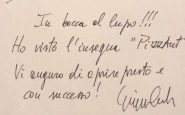 In bocca al lupo!!!
Ho visto l'insegna "PizzAut"
Vi auguro di aprire presto e
con successo!